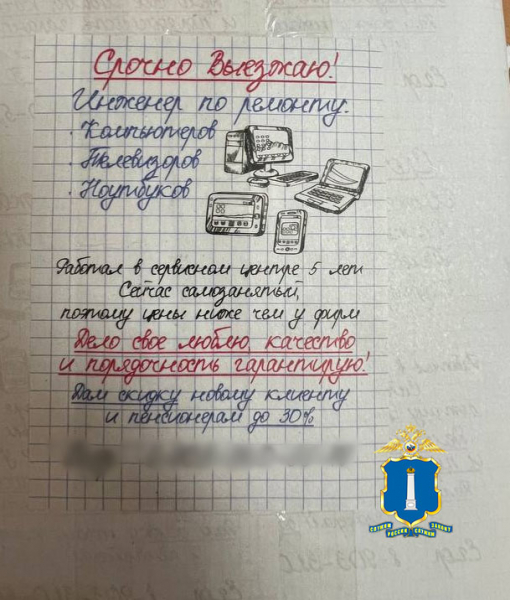 Срочно Выезжаю!
Инженер по ремонту:
· Компьютеров
· Телевизоров
· Ноутбуков
Работал в сервисном центре 5 лет
Сейчас самозанятый,
поэтому цены ниже чем у фирм
Дело свое люблю, качество
и порядочность гарантирую!
Дам скидку новому клиенту
и пенсионерам до 30%
СЛУЖИМ РОССИИ, СЛУЖИМ ЗАКОНУ